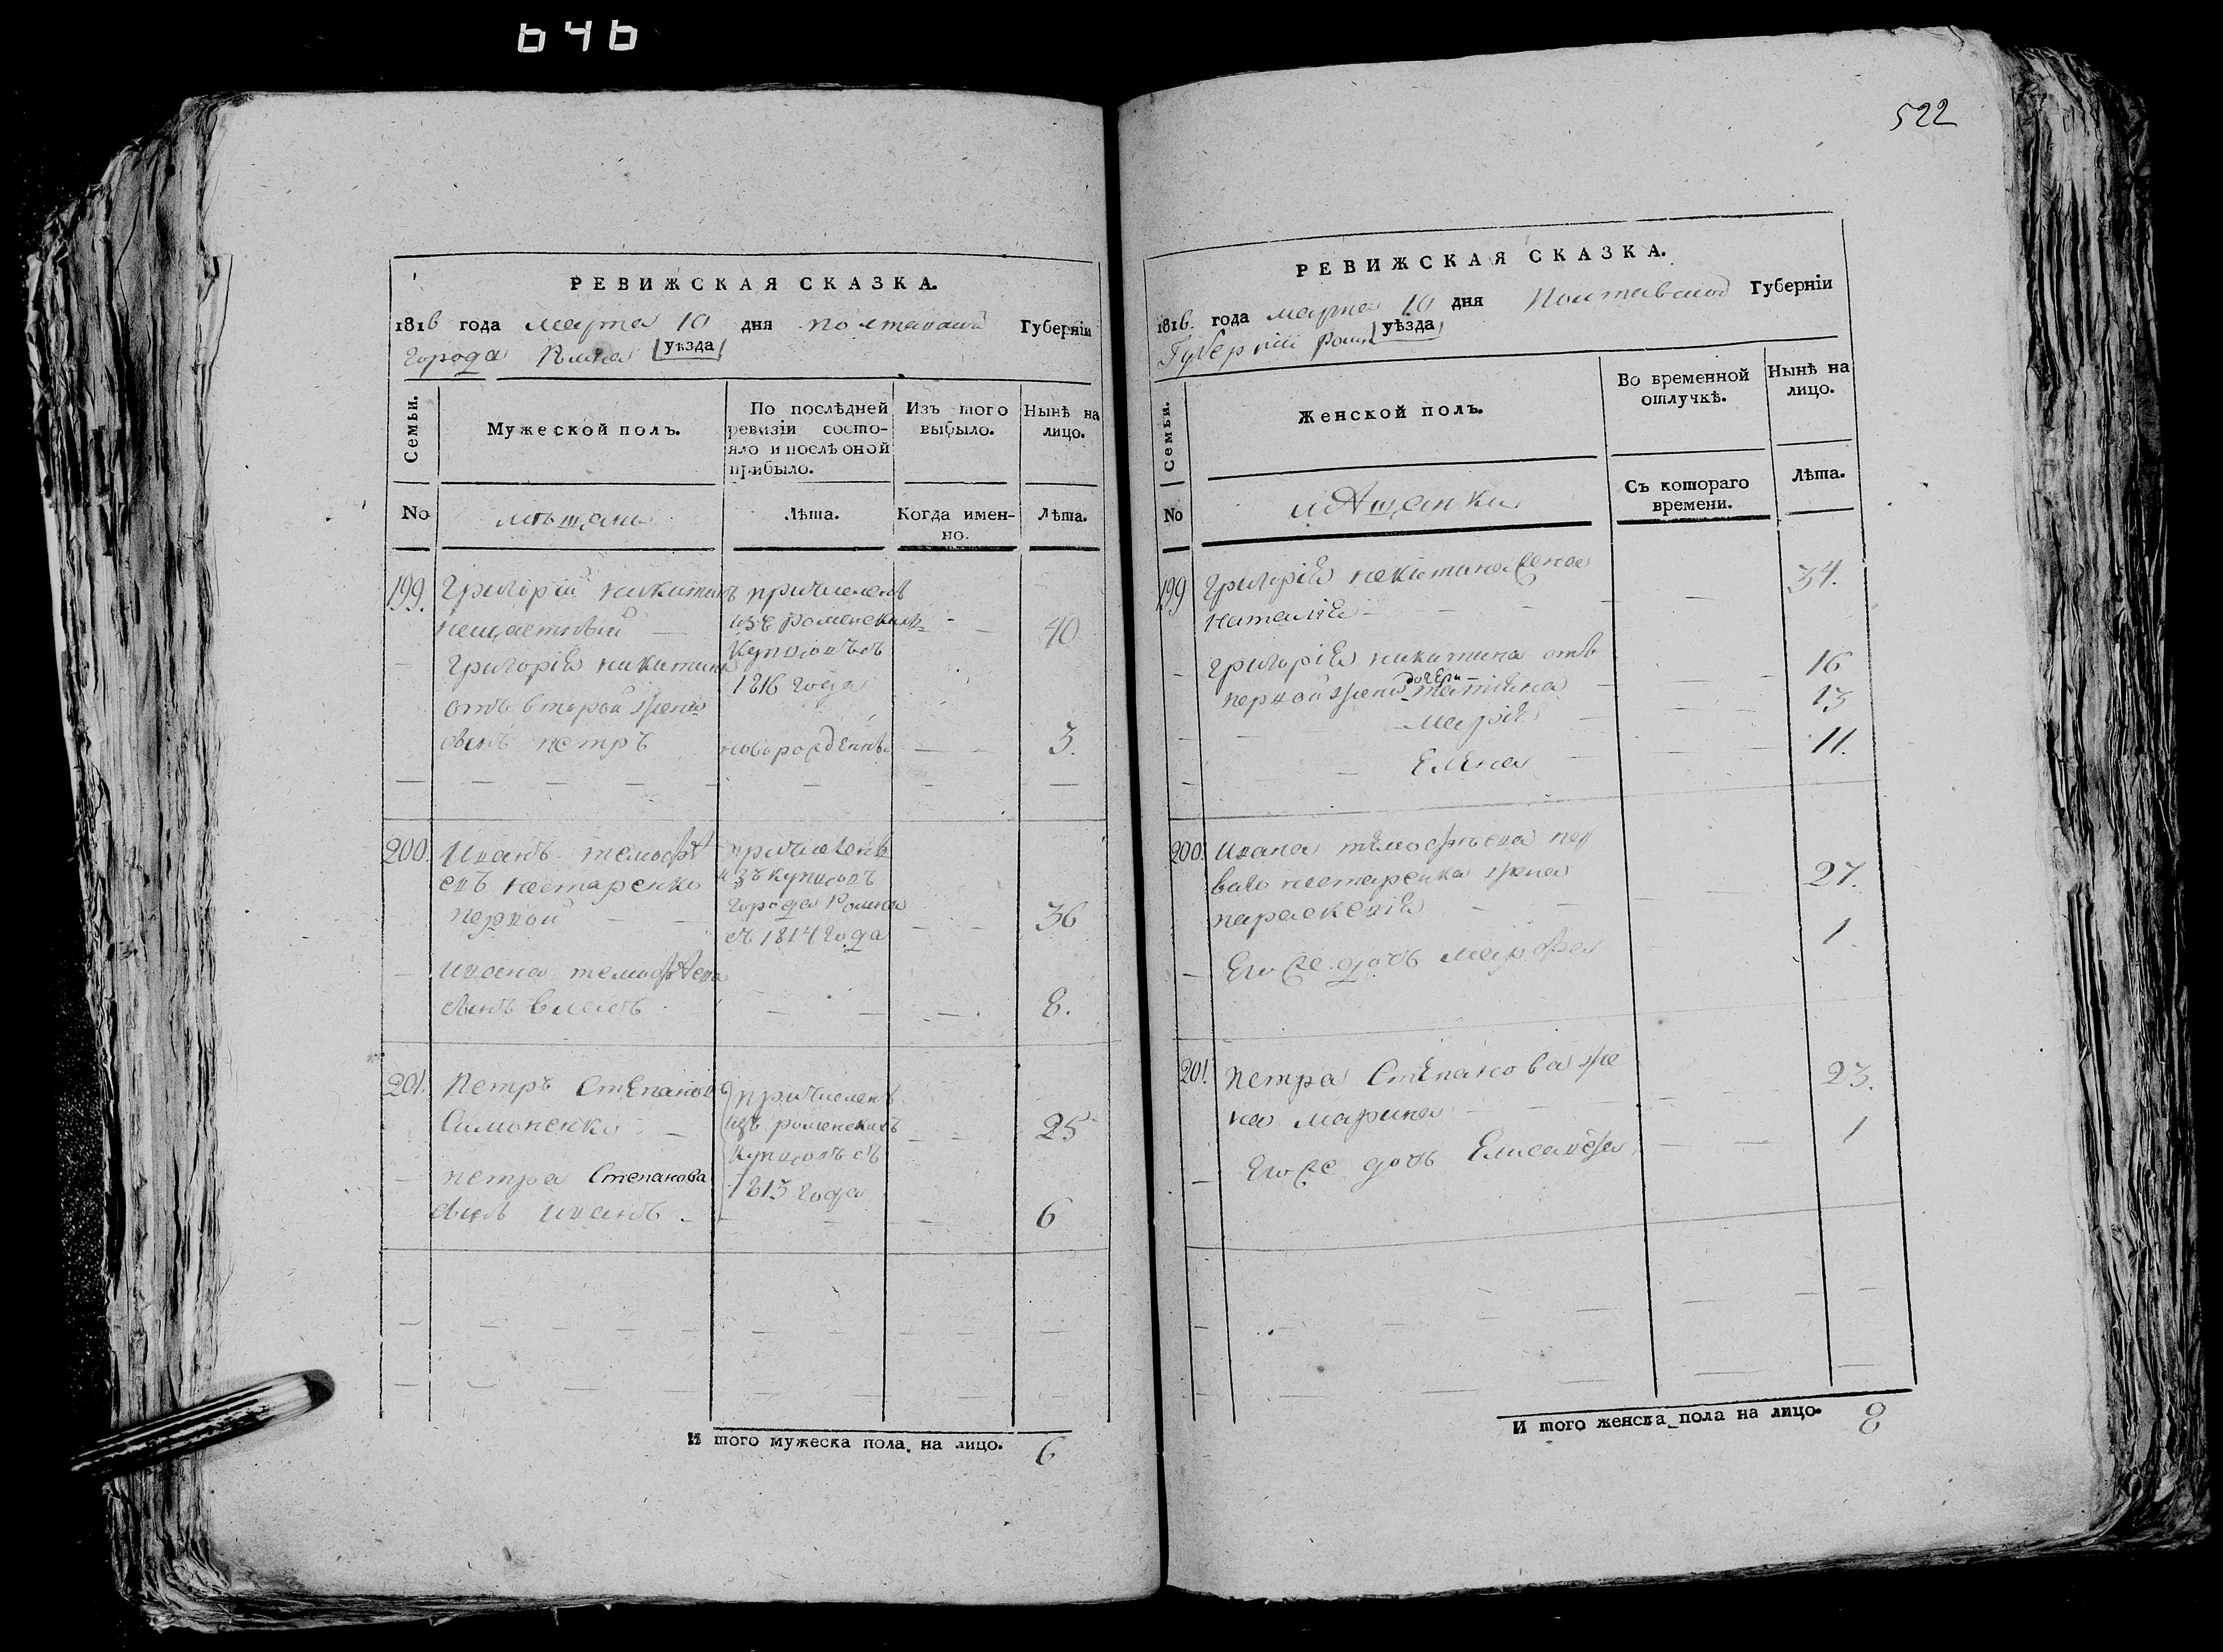 646
РЕВИЖСКАЯ СКАЗКА.
1816 года марта 10 дня полтавской Губерніи
города Ромна уѣзда
Семьи.
Мужеской полъ.
По послѣдней
ревизіи состо-
яло и послѣ оной
прибыло.
Изъ того
выбыло.
Нынѣ на
лицо.
No
мѣщани
Лѣта.
Когда имен-
но.
Лѣта.
199. Григорій никитинъ причисленъ
нещастный изъ роменскихъ 40
Григорія никитина купцовъ съ
1816 года
отъ второй жены
сынъ петръ новорожденны 3.
200. Иванъ тимофѣ причисленъ
евъ нестаренко изъ купцовъ
города Ромна
первой 36
съ 1814 года
ивана тимофѣева
сынъ власъ 8.
201. Петръ Степановъ причисленъ
Симоненко изъ роменскихъ 25
купцовъ съ
петра Степанова 1815 года
сынъ иванъ 6
И того мужеска пола на лицо. 6
522
РЕВИЖСКАЯ СКАЗКА.
1816. года марта 10 дня Полтавской Губерніи
Губерніи Ромн уѣзда
Семьи.
Женской полъ.
Во временной
отлучкѣ.
Нынѣ на
лицо.
No
мѣщанки
Съ котораго
времени.
Лѣта.
199 Григорія никитина жена
наталія 34.
григорія никитина отъ
первой жены дочери татіяна 16
марія 13
Елена 11.
200. ивана тимофѣева пер
ваго нестаренка жена
параскевія 27.
Его же дочь марфа 1.
201. Петра Степанова же
на марина 23.
Его же дочь Елисавета 1
И того женска пола на лицо. 8